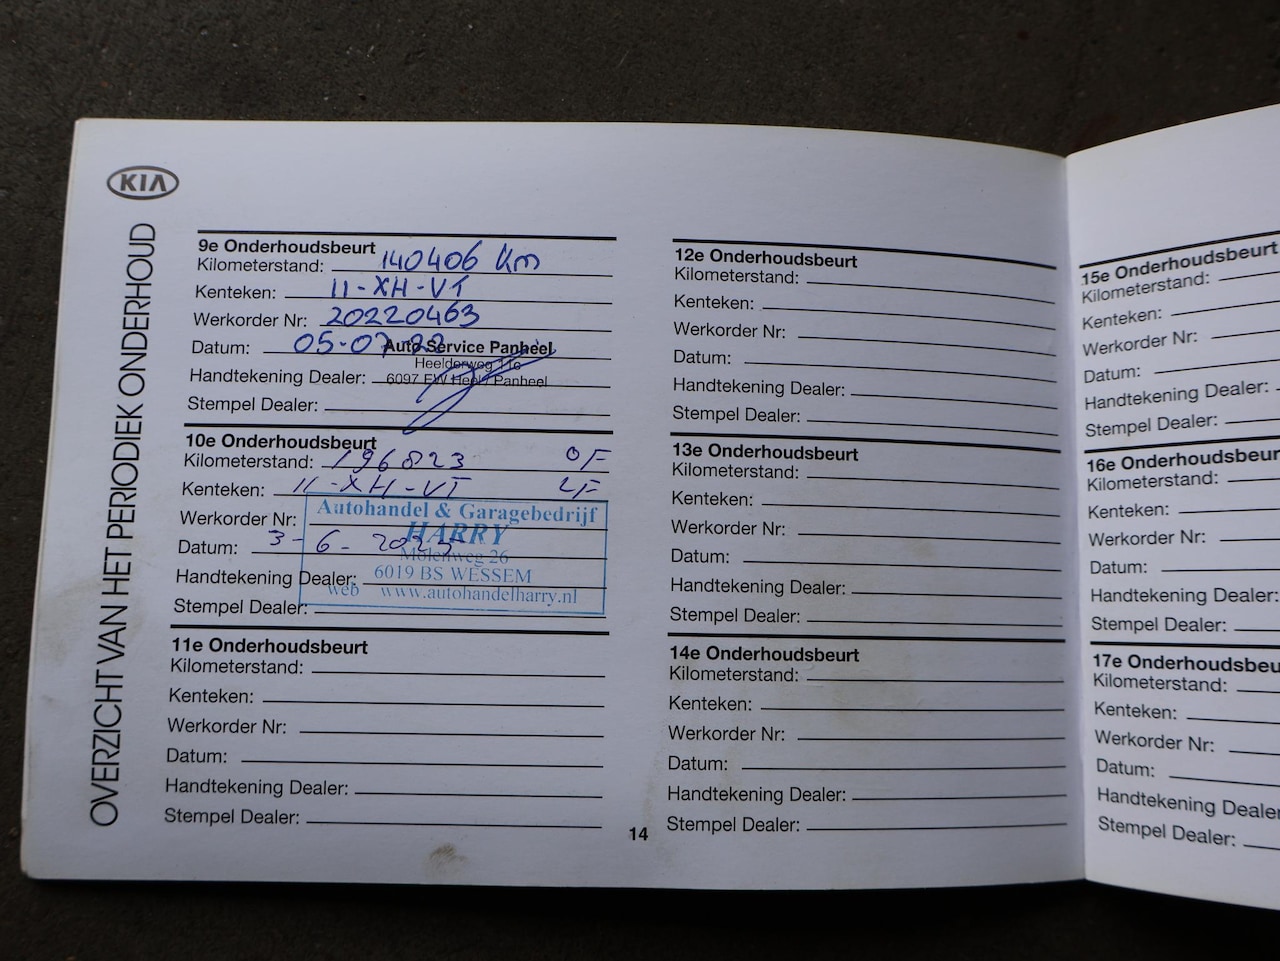 KIA
OVERZICHT VAN HET PERIODIEK ONDERHOUD
9e Onderhoudsbeurt
Kilometerstand: 140406 Km
Kenteken: 11-XH-VT
Werkorder Nr: 20220463
Datum: 05-07-22
Auto Service Panheel
Heelderweg 11c
Handtekening Dealer:
6097 EW Heel / Panheel
Stempel Dealer:
10e Onderhoudsbeurt
Kilometerstand: 196823 OF
Kenteken: 11-XH-VT LF
Autohandel & Garagebedrijf
Werkorder Nr:
HARRY
Datum: 3-6-2025
Molenweg 26
6019 BS WESSEM
Handtekening Dealer:
web www.autohandelharry.nl
Stempel Dealer:
11e Onderhoudsbeurt
Kilometerstand:
Kenteken:
Werkorder Nr:
Datum:
Handtekening Dealer:
Stempel Dealer:
12e Onderhoudsbeurt
Kilometerstand:
Kenteken:
Werkorder Nr:
Datum:
Handtekening Dealer:
Stempel Dealer:
13e Onderhoudsbeurt
Kilometerstand:
Kenteken:
Werkorder Nr:
Datum:
Handtekening Dealer:
Stempel Dealer:
14e Onderhoudsbeurt
Kilometerstand:
Kenteken:
Werkorder Nr:
Datum:
Handtekening Dealer:
Stempel Dealer:
14
15e Onderhoudsbeurt
Kilometerstand:
Kenteken:
Werkorder Nr:
Datum:
Handtekening Dealer:
Stempel Dealer:
16e Onderhoudsbeur
Kilometerstand:
Kenteken:
Werkorder Nr:
Datum:
Handtekening Dealer:
Stempel Dealer:
17e Onderhoudsbeu
Kilometerstand:
Kenteken:
Werkorder Nr:
Datum:
Handtekening Dealer
Stempel Dealer: